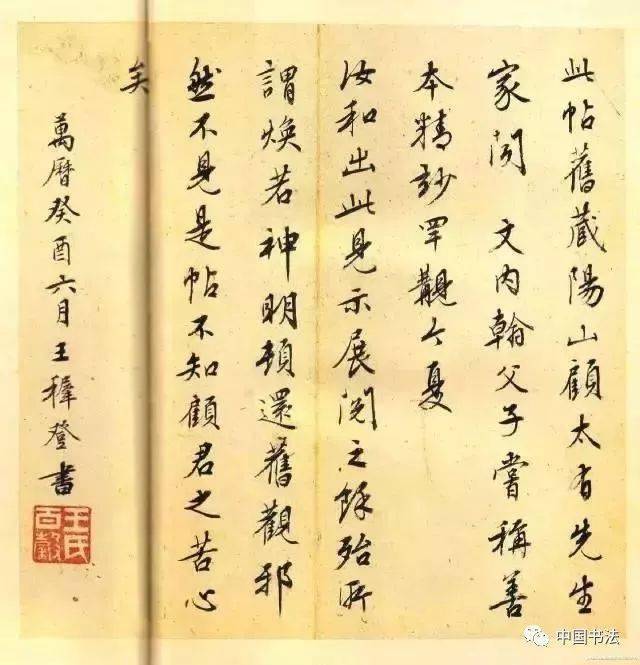 此帖舊藏陽山顧太有先生
家間 文內翰父子嘗稱善
本精玅罕覯今夏
汝和出此見示展閱之餘殆所
謂煥若神明頓還舊觀邪
然不見是帖不知顧君之苦心
矣
萬曆癸酉六月王穉登書
王氏
百穀
中国书法